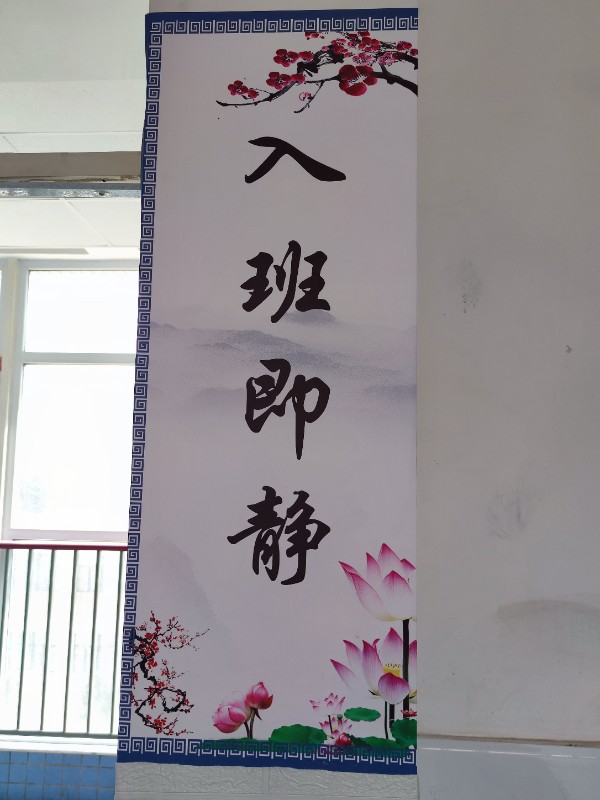 入班即静